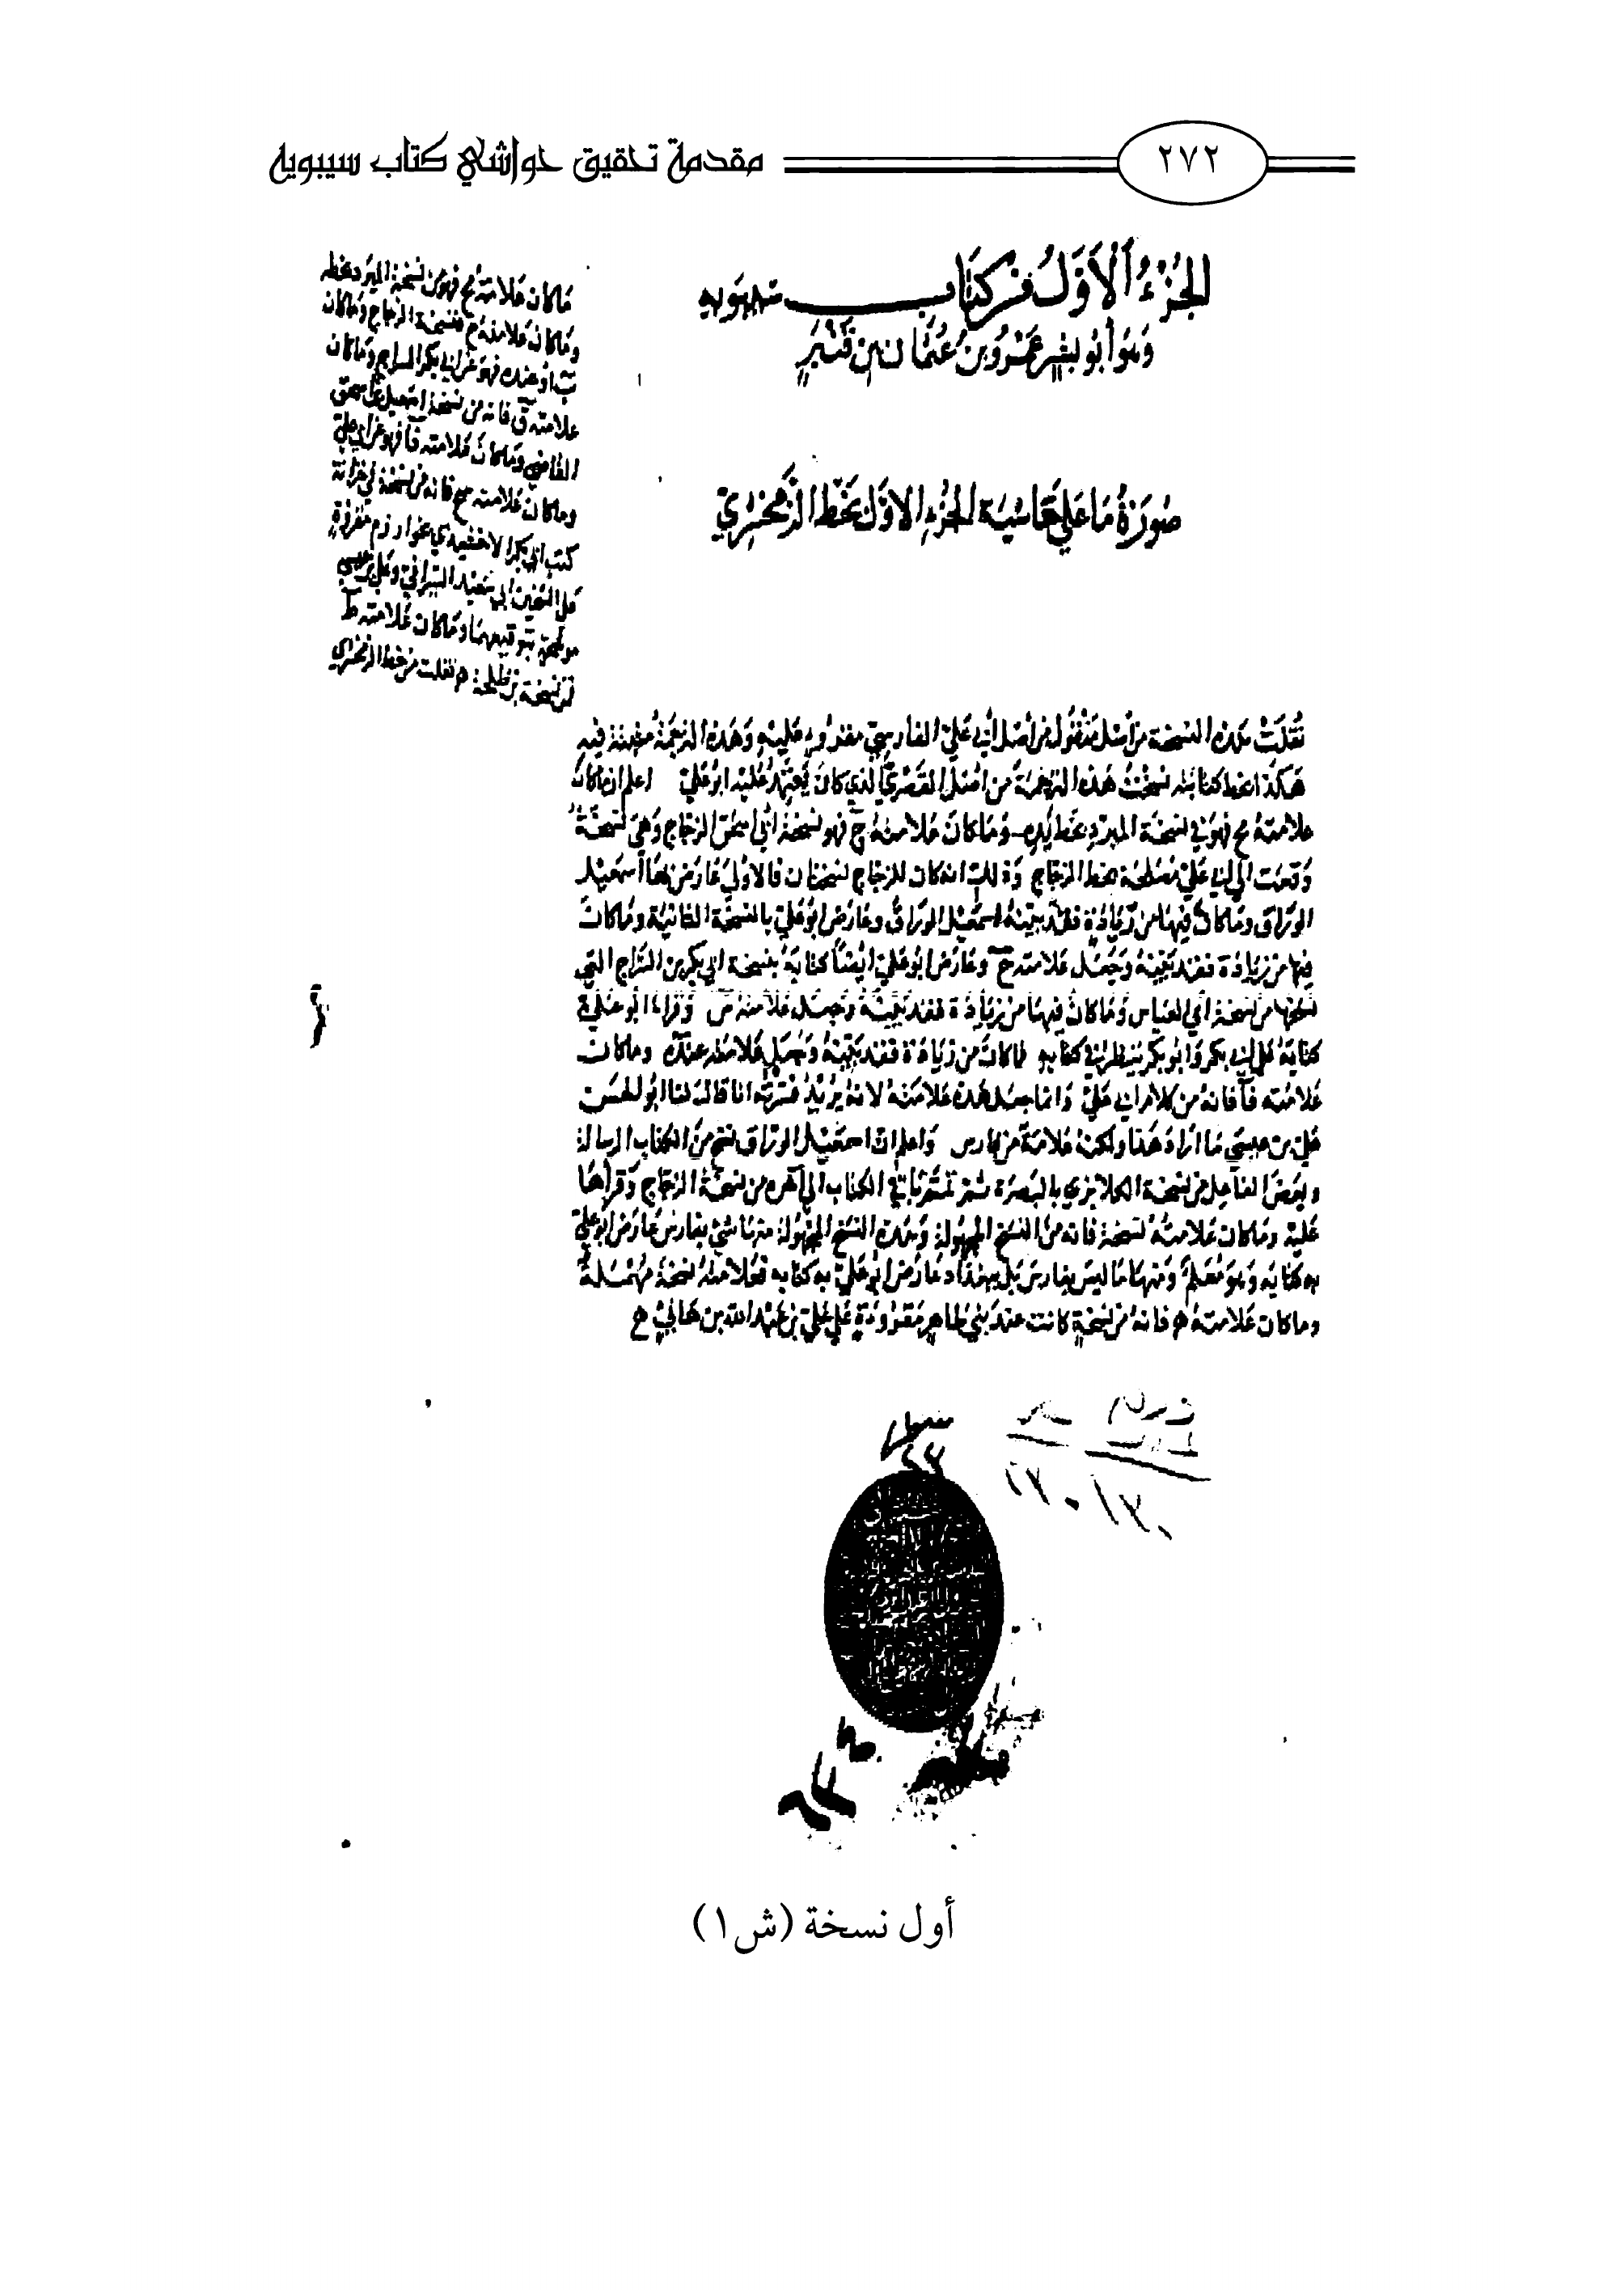 ٢٧٢
مقدمة تحقيق حواشي كتاب سيبويه
الجُزْءُ الأَوَّلُ مِنْ كِتَابِ سِيبَوَيهِ
وَهُوَ أَبُو بِشْرٍ عَمْرُو بْنُ عُثْمَانَ بْنِ قَنْبَرٍ
صُورَةُ مَا عَلَى حَاشِيَةِ الجُزْءِ الأوّلِ بخَطّ الزَّمَخْشَرِيّ
مَا كان عَلامَتهُ مح فهو من نسخة المبرد بخطه
وَمَا كان عَلامته ج فنسخة الزجاج وَمَا كان
ب او عنده فهو عن ابي بكر السراج وَمَا كان
علامته ق فانه من نسخة اسمعيل بن اسحق
القاضي وما كان عَلامته فا فهو عن ابي علي
وما كان عَلامته فانه من نسخة في خزانة
كتب ابي بكر بخوارزم مقروة
على الشيخين ابي سَعيد السّيرافيّ وعلي بن عيسى
بتوقيعهما وَمَا كان عَلامته ط
فمن نسخة بن طلحة ه نقلت من خط الزمخشري
نُقِلَتْ هذه النسخة من أصل مَنْقُول من أصل أبي عَليّ الفارسِيّ مقروءٍ عَليهِ وَهَذه الترجَمَةُ مثبتة فيه
هَكذا بخط كتابته نسَخْتُ هَذه الترجَمَةَ من أصْل القَصْرِيّ الذي كانَ يَعتمِدُ عَليه ابو عَليّ اعلم ان ما كانَ
علامتهُ مح فهوَ في نسخة المبرّدِ بخط يَده وَمَا كانَ عَلامتهُ ج فهو نسخة أبي اسحق الزجاج وَهيَ نسخَةٌ
وَقعَت الى ابي عَليّ مصلحَة بخط الزجاج وَذلك انه كان للزجاج نسختان فالاولى عَارَض بها اسمعيل
الورّاق وما كانَ فيها من زيَادَة فقَد بَيّنهُ اسمعيل الورّاق وعارَض ابُو عليّ بالنسخة الثانية وَمَا كانَ
فيها من زيادة فقد بيّنهُ وَجَعَل عَلامته خ وعَارَض ابو عَليّ ايضًا كتابَهُ بنسخة ابي بكر بن السّراج التي
نسَخها من نسخة أبي العباس وَمَا كانَ فيها من زيَادَة فقد بَيّنهُ وَجَعل عَلامتهُ س وَقرأ ابو عَليّ
كتابَهُ على ابي بكر وَابو بكر ينظر في كتابه فما كانَ من زيَادَة فقد بيّنهُ وَجَعَل عَلامته عنده وما كان
عَلامته فا فانه من كلام ابي عَليّ وَانما جعل هذه علامته لانهُ يُريدُ انا قال لنا ابو الحسن
عَليّ بن عيسَى مَا أرادَ هَذا ولكنهُ عَلامَةٌ من فارس وَاعلم ان اسمعيل الورّاق نسَخ مِنَ الكتاب الرسالة
وبَعض الفاعل من نسخة الكلابزي بالبَصرة ثمّ تمّمَ باقي الكتاب الى آخره من نسخة الزجاج وَقرأهَا
عَليْهِ وَمَا كان عَلامتهُ نسخة فانه منَ النسَخ المجهولة وَهذه النسَخ المجهُولة منها شيْ بفارسَ عَارَض ابو عَليّ
به كتابه وَهو مُعَلم وَمنها مَا ليسَ بفارسَ بَل ببغداد عَارَض ابُو عَليّ به كتابه فعَلامتهُ نسخَةٌ مُهْمَلَةٌ
وما كان عَلامتهُ ه فانهُ من نسخَةٍ كانت عند بَني طَاهرٍ مَقرُوءَةٍ عَلى عَليّ بن عَبد الله بن هَانيْ
أول نسخة (ش١)